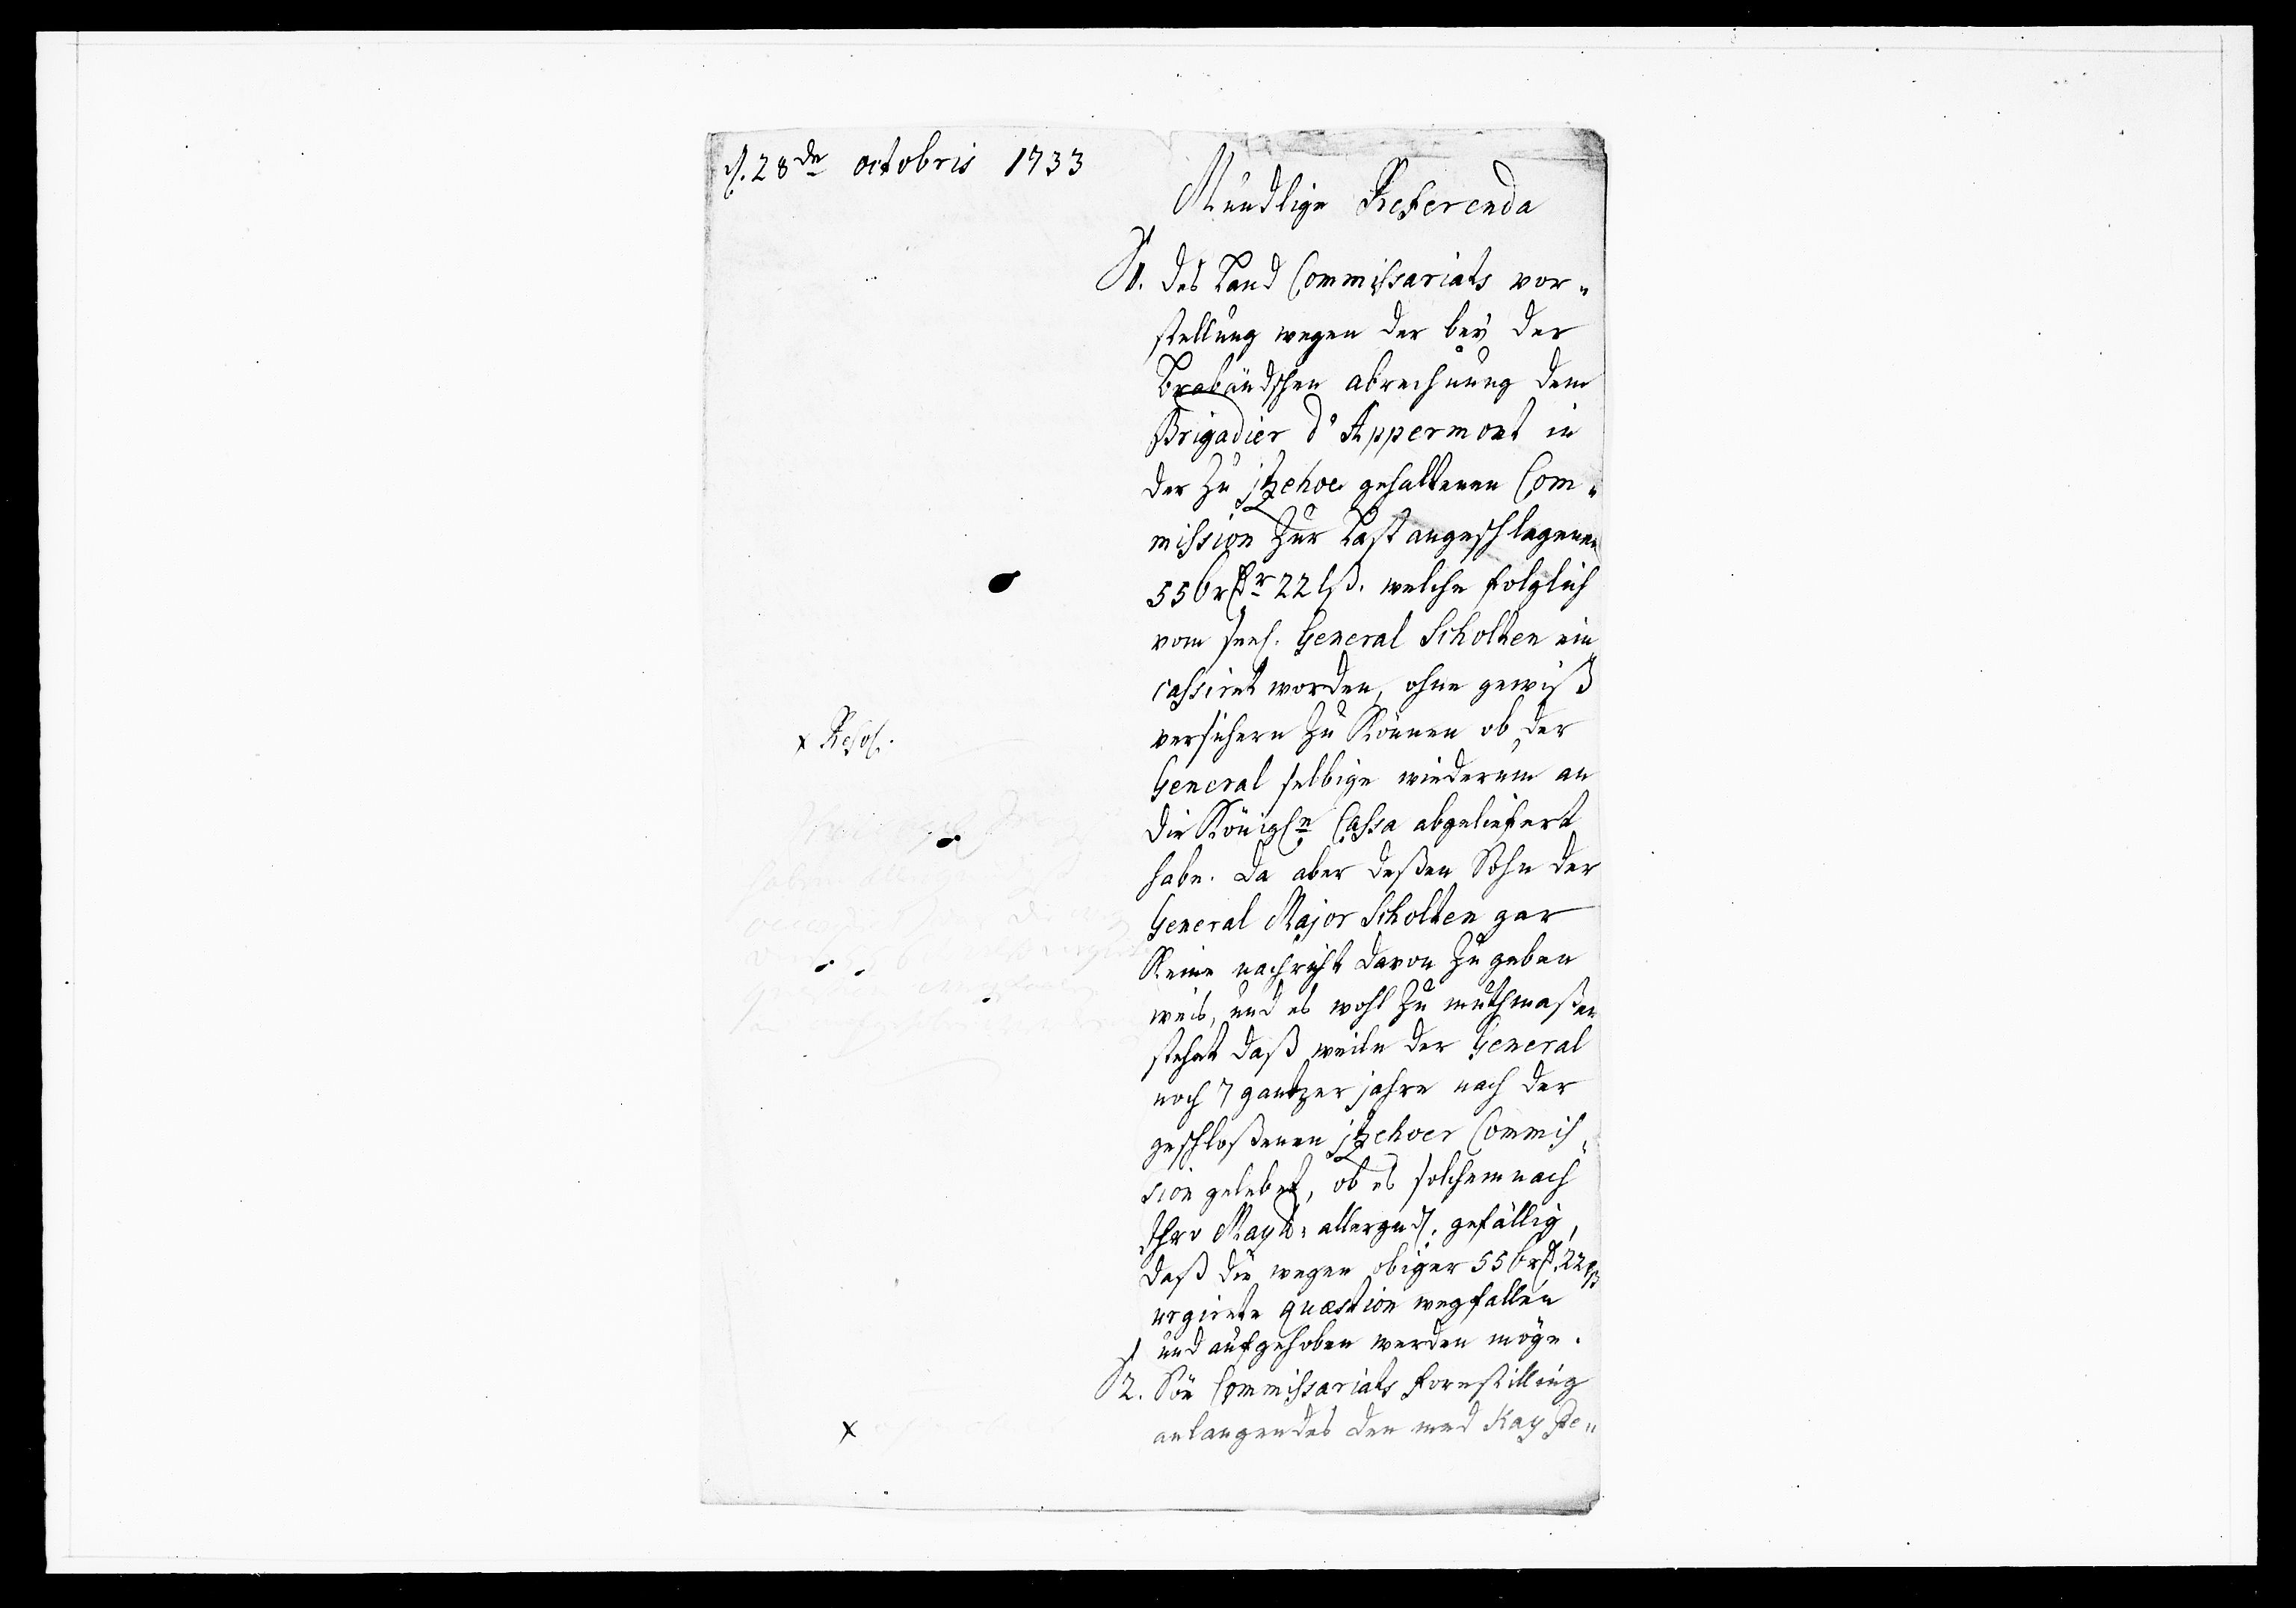 d. 28de octobris 1733
Mundlige Referenda
§1. des Land Commissariats vor-
stellung wegen der beÿ der
Brabändschen abrechnung dem
Brigadier d'Appermont in
der zu jtzehoe gehaltenen Com-
mission zur Last angeschlagenen
556 r 22 lß. welche folglich
vom seel. General Scholten ein
cassiret worden, ohne gewiß
versichern zu Können ob der
General selbige wiederum an
die Königln Cassa abgeliefert
habe. Da aber deßen Sohn der
General Major Scholten gar
Keine nachricht davon zu geben
weis, und es wohl zu muthmaßen
stehet daß weiln der General
noch 7 gantzer jahre nach der
geschloßenen jtzehoer Commis-
sion gelebet, ob es solchemnach
Ihro Maytt: allergndl. gefällig,
daß die wegen obiger 556 r 22 lß
urgirete quæstion wegfallen
und aufgehoben werden möge.
§2. Söe Commissariats forestilling
anlangendes den med Kay Pe-
x Resol.
x